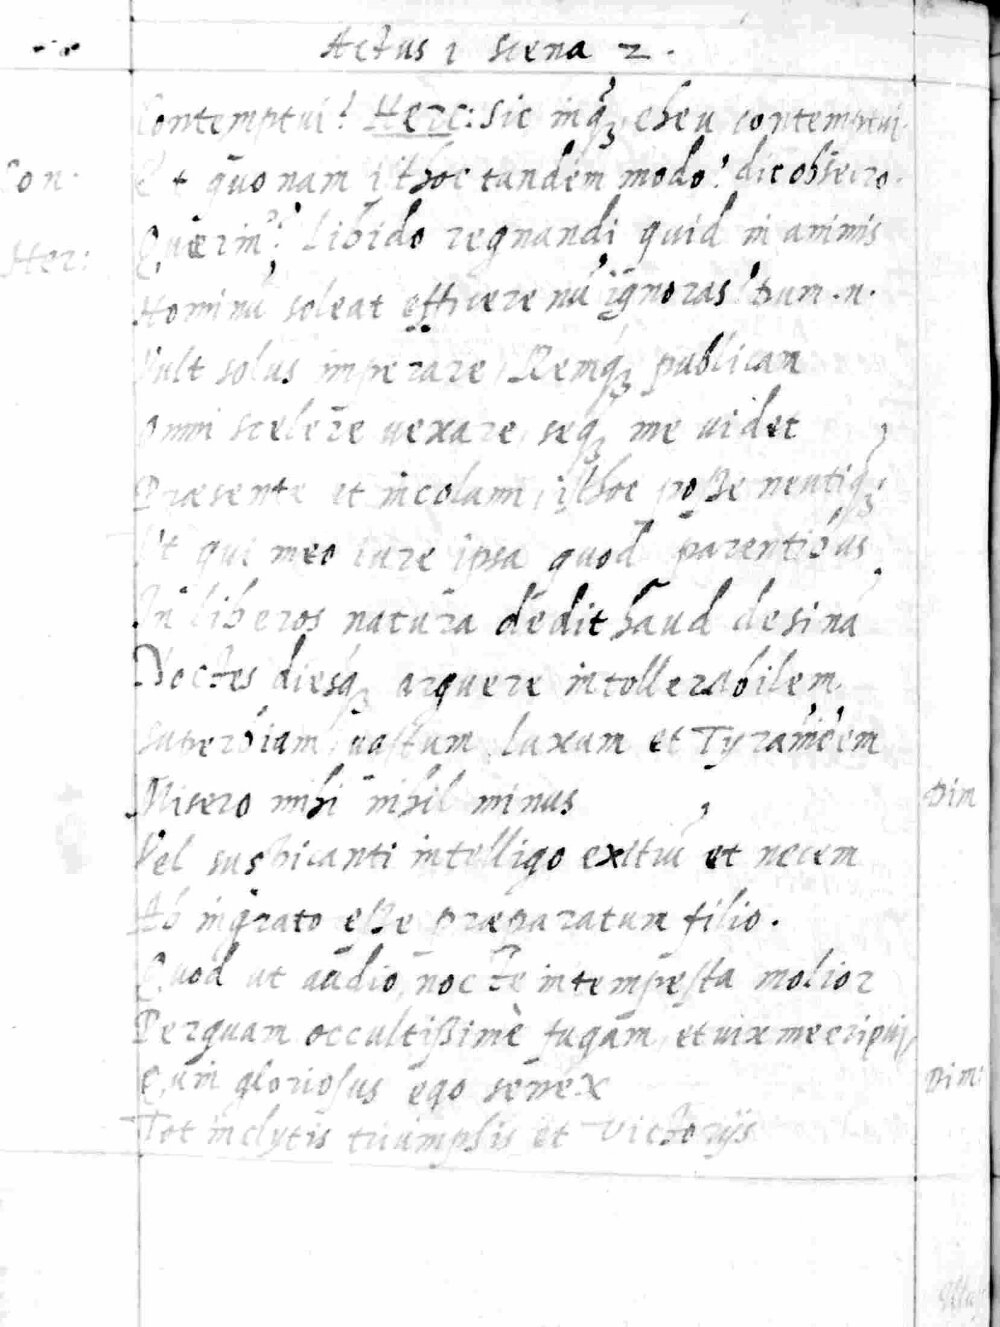 Actus 1 scena 2.
Contemptui! Herc: Sic inqꝫ, eheu contemptui.
Con: Et quo nam isthoc tandem modo? dic obsecro.
Her: Quærin? Libido regnandi quid in animis
Hominū soleat efficere nū ignoras? Dum .n.
Vult solus imperare, Remqꝫ publicam
Omni scelere vexare, seqꝫ me videt
Præsente et incolumi, isthoc poße neutiqꝫ,
Vt qui meo iure ipsa quod parentibus
In liberos natura dedit haud desinā
Noctes diesqꝫ arguere intollerabilem
Superbiam, uastum luxum et Tyrānidem
Misero mihi nihil minus Dim
Vel suspicanti intelligo exitiū et necem
Ab ingrato eße præparatum filio.
Quod ut audio, nocte intempesta molior
Perquam occultißimè fugam, et uix me eripui,
Cum gloriosus ego senex Dim:
Tot inclytis triumphis et victorijs